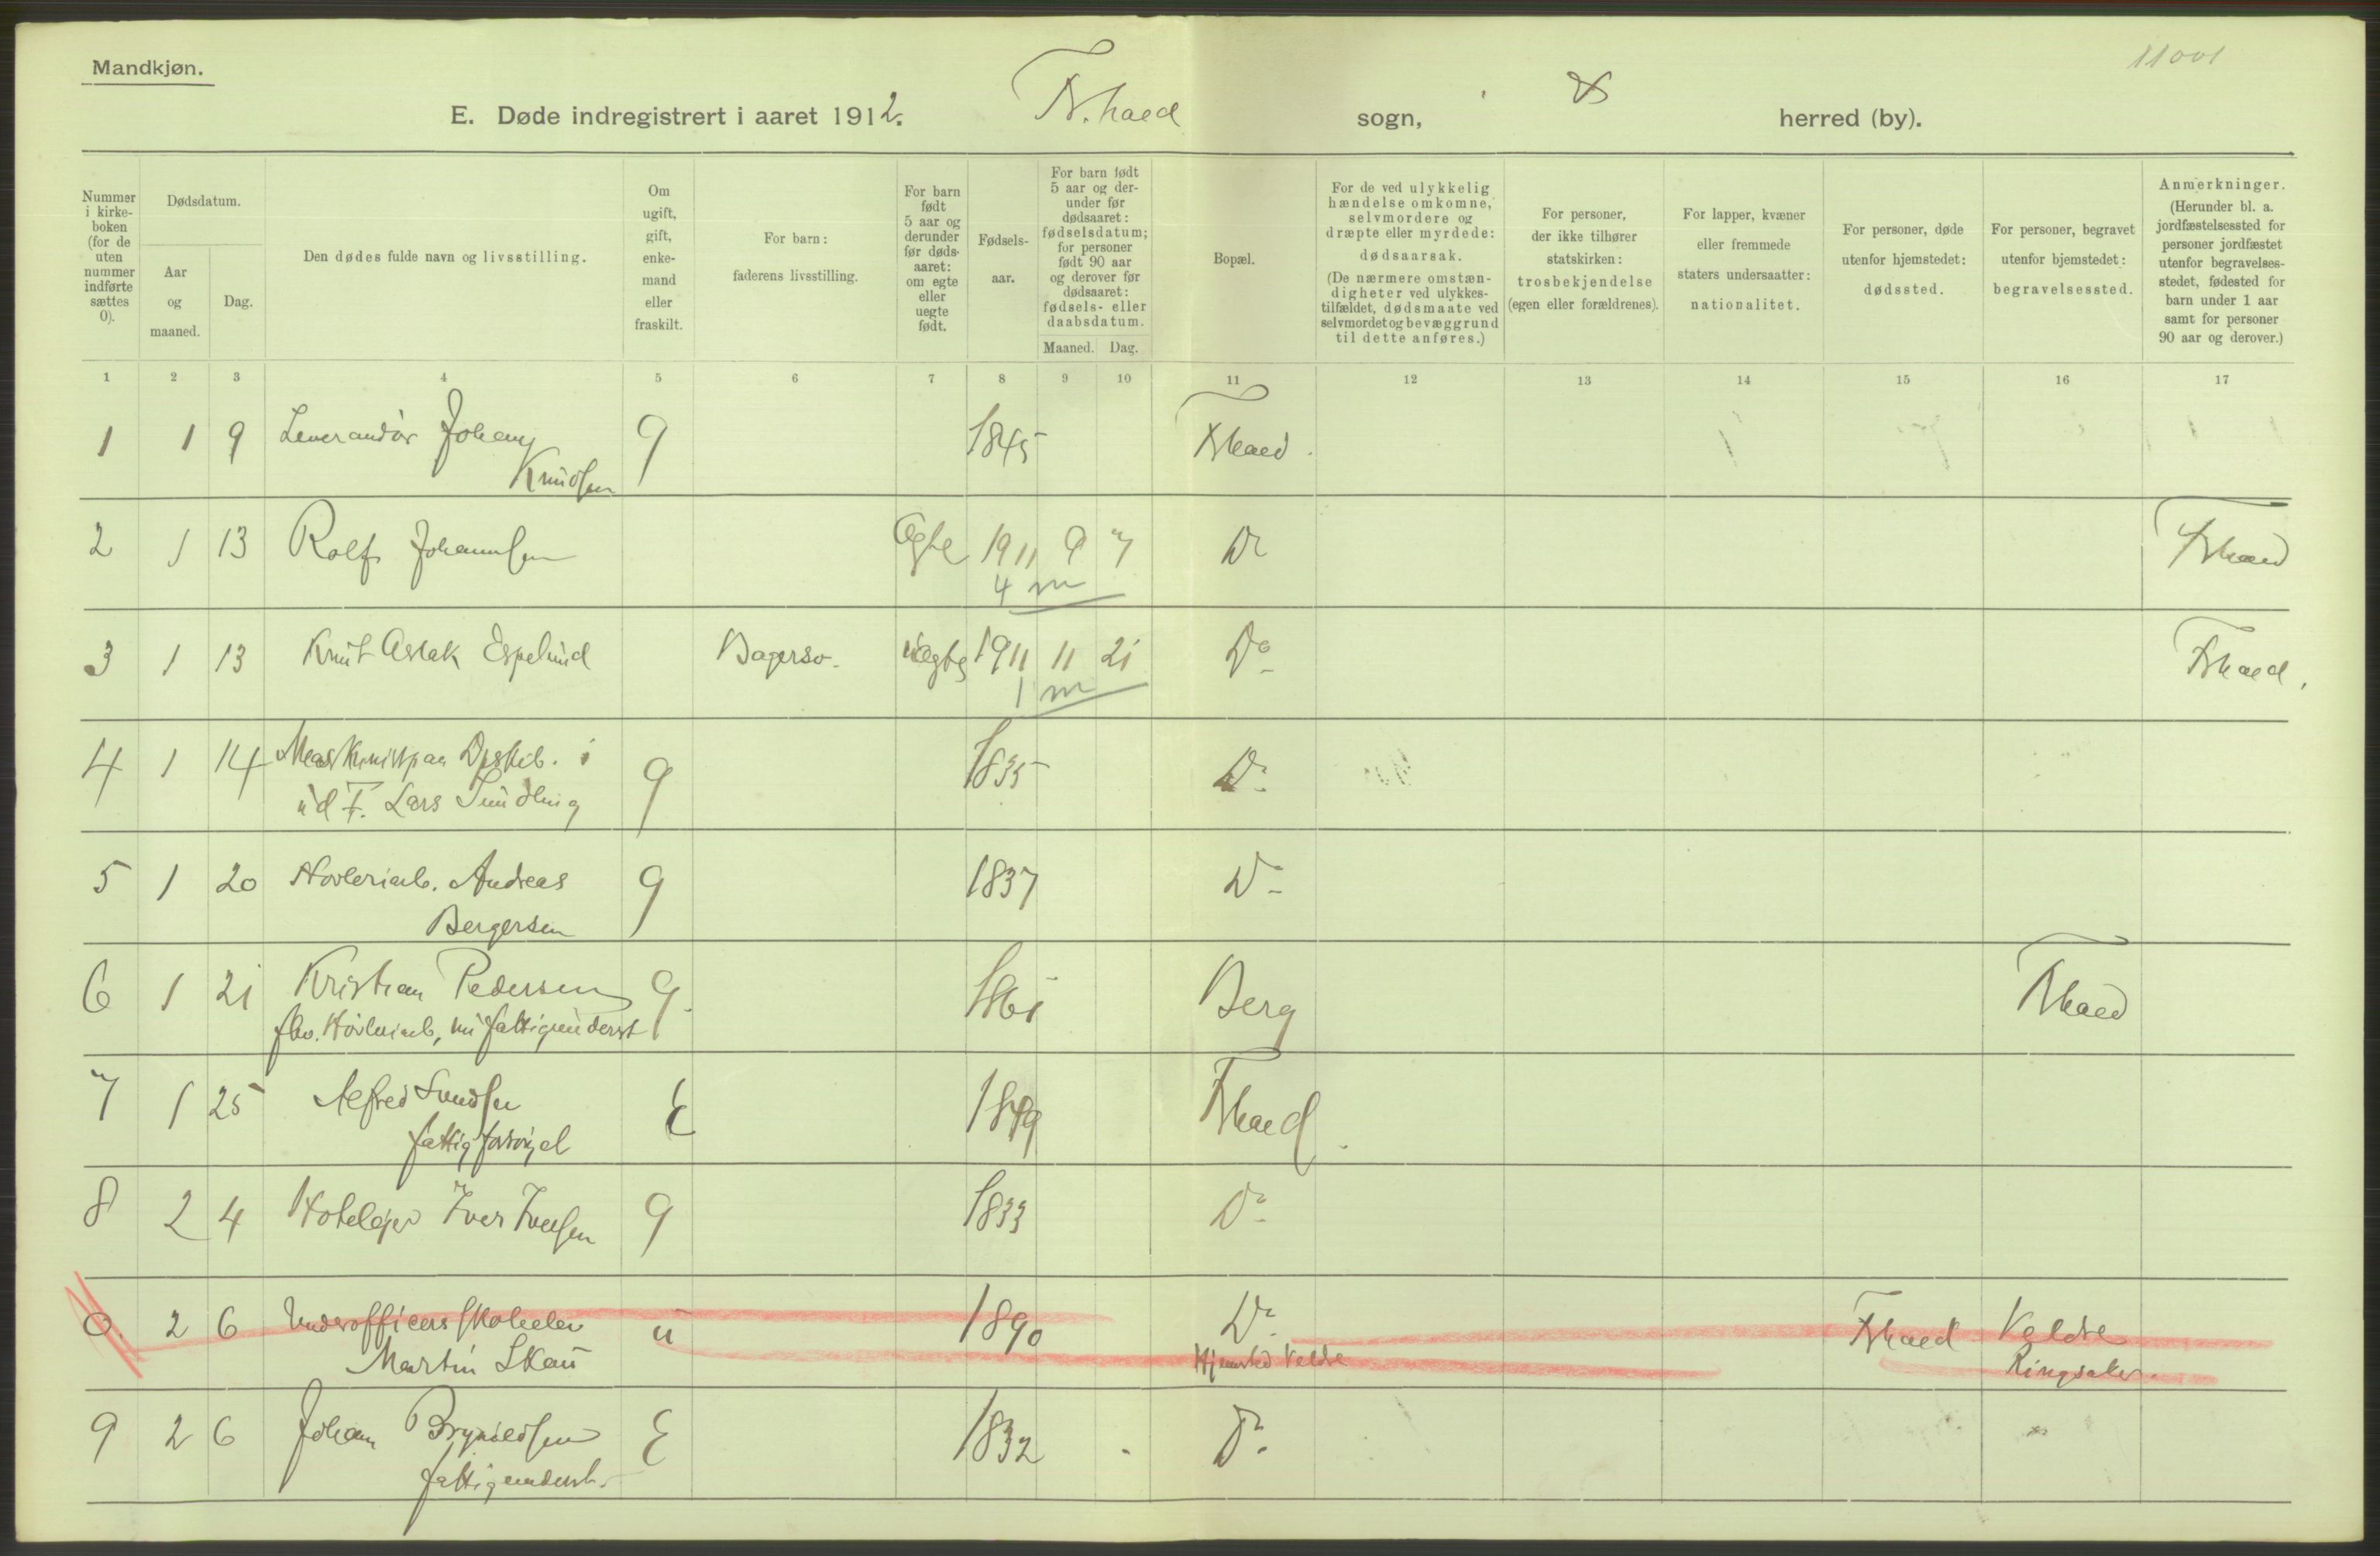 Mandkjøn.
11001
E. Døde indregistrert i aaret 1912. Fr.hald sogn, herred (by).
Nummer i kirke-boken (for de uten nummer indførte sættes 0).
Dødsdatum.
Aar og maaned.
Dag.
Den dødes fulde navn og livsstilling.
Om ugift, gift, enke-mand eller fraskilt.
For barn: faderens livsstilling.
For barn født 5 aar og derunder før døds-aaret: om egte eller uegte født.
Fødsels-aar.
For barn født 5 aar og der-under før dødsaaret: fødselsdatum; for personer født 90 aar og derover før dødsaaret: fødsels- eller daabsdatum.
Maaned. Dag.
Bopæl.
For de ved ulykkelig hændelse omkomne, selvmordere og dræpte eller myrdede: dødsaarsak.
(De nærmere omstæn-digheter ved ulykkes-tilfældet, dødsmaate ved selvmordet og bevæggrund til dette anføres.)
For personer, der ikke tilhører statskirken: trosbekjendelse (egen eller forældrenes).
For lapper, kvæner eller fremmede staters undersaatter: nationalitet.
For personer, døde utenfor hjemstedet: dødssted.
For personer, begravet utenfor hjemstedet: begravelsessted.
Anmerkninger. (Herunder bl. a. jordfæstelsessted for personer jordfæstet utenfor begravelses-stedet, fødested for barn under 1 aar samt for personer 90 aar og derover.)
1 2 3 4 5 6 7 8 9 10 11 12 13 14 15 16 17
1 1 9 Leverandör Johan g 1845 Frhald.
Knudsen
2 1 13 Rolf Johannsen Egte 1911 9 7 Do Frhald
4 m
3 1 13 Knut Aslak Espelund Bagersv. uegte 1911 11 21 Do Frhald.
1 m
4 1 14 Maskinist paa Dpskib. i g 1835 Do
ud F. Lars Sundling
5 1 20 Høvleriarb. Andreas g 1837 Do
Bergersen
6 1 21 Kristian Pedersen g. 1861 Berg Frhald
fhv. Høvleriarb, nu fattigunderst
7 1 25 Alfred Svendsen E 1849 Frhald.
fattigforsörget
8 2 4 Hoteleier Iver Iversen g 1833 Do
0. 2 6 Underofficersskoleelev u 1890 Do Frhald Veldre
Martin Skau Hjemsted Veldre Ringsaker.
9 2 6 Johan Brynildsen E 1832 Do
fattigunderst.